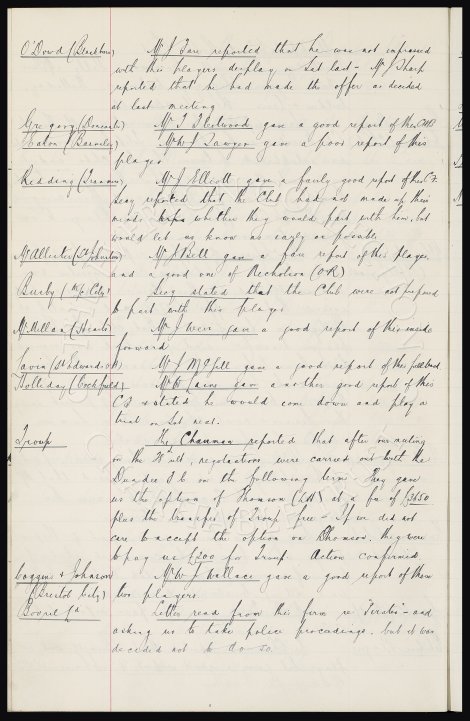 O'Dowd (Blackburn) Mr J Fare reported that he was not impressed
with this players display on Sat last - Mr J Sharp
reported that he had made the offer as decided
at last meeting
Gregory (Doncaster) Mr T Fleetwood gave a good report of this
Eaton (Barnsley) Mr W J Sawyer gave a poor report of this
player
Redding (Tranmere) Mr J Elliott gave a fairly good report of this C.F.
Secy reported that the Club had not made up their
minds whether they would part with him, but
would let us know as early as possible
McAllister (St Johnstone) Mr J Bell gave a fair report of this player
and a good one of Nicholson (OR)
Busby (M/c City) Secy stated that the Club were not prepared
to part with this player
McMillan (Hearts) Mr J Weir gave a good report of this inside
forward
Gavin (St Edwards) Mr J McGill gave a good report of this full back
Holliday (Cockfield) Mr W Cairns gave another good report of this
C.F. & stated he would come down and play a
trial on Sat next.
Troup The Chairman reported that after our meeting
on the ult, negotiations were carried out with the
Dundee F.C on the following terms - They gave
us the option of Thomson (LH) at a fee of £3650
plus the transfer of Troup free - If we did not
care to accept the option on Thomson, they were
to pay us £200 for Troup Action confirmed
Coggins & Johnson Mr W J Wallace gave a good report of these
(Bristol City) two players
Letter read from this firm re "Pirates" - and
asking us to take police proceedings, but it was
decided not to do so.